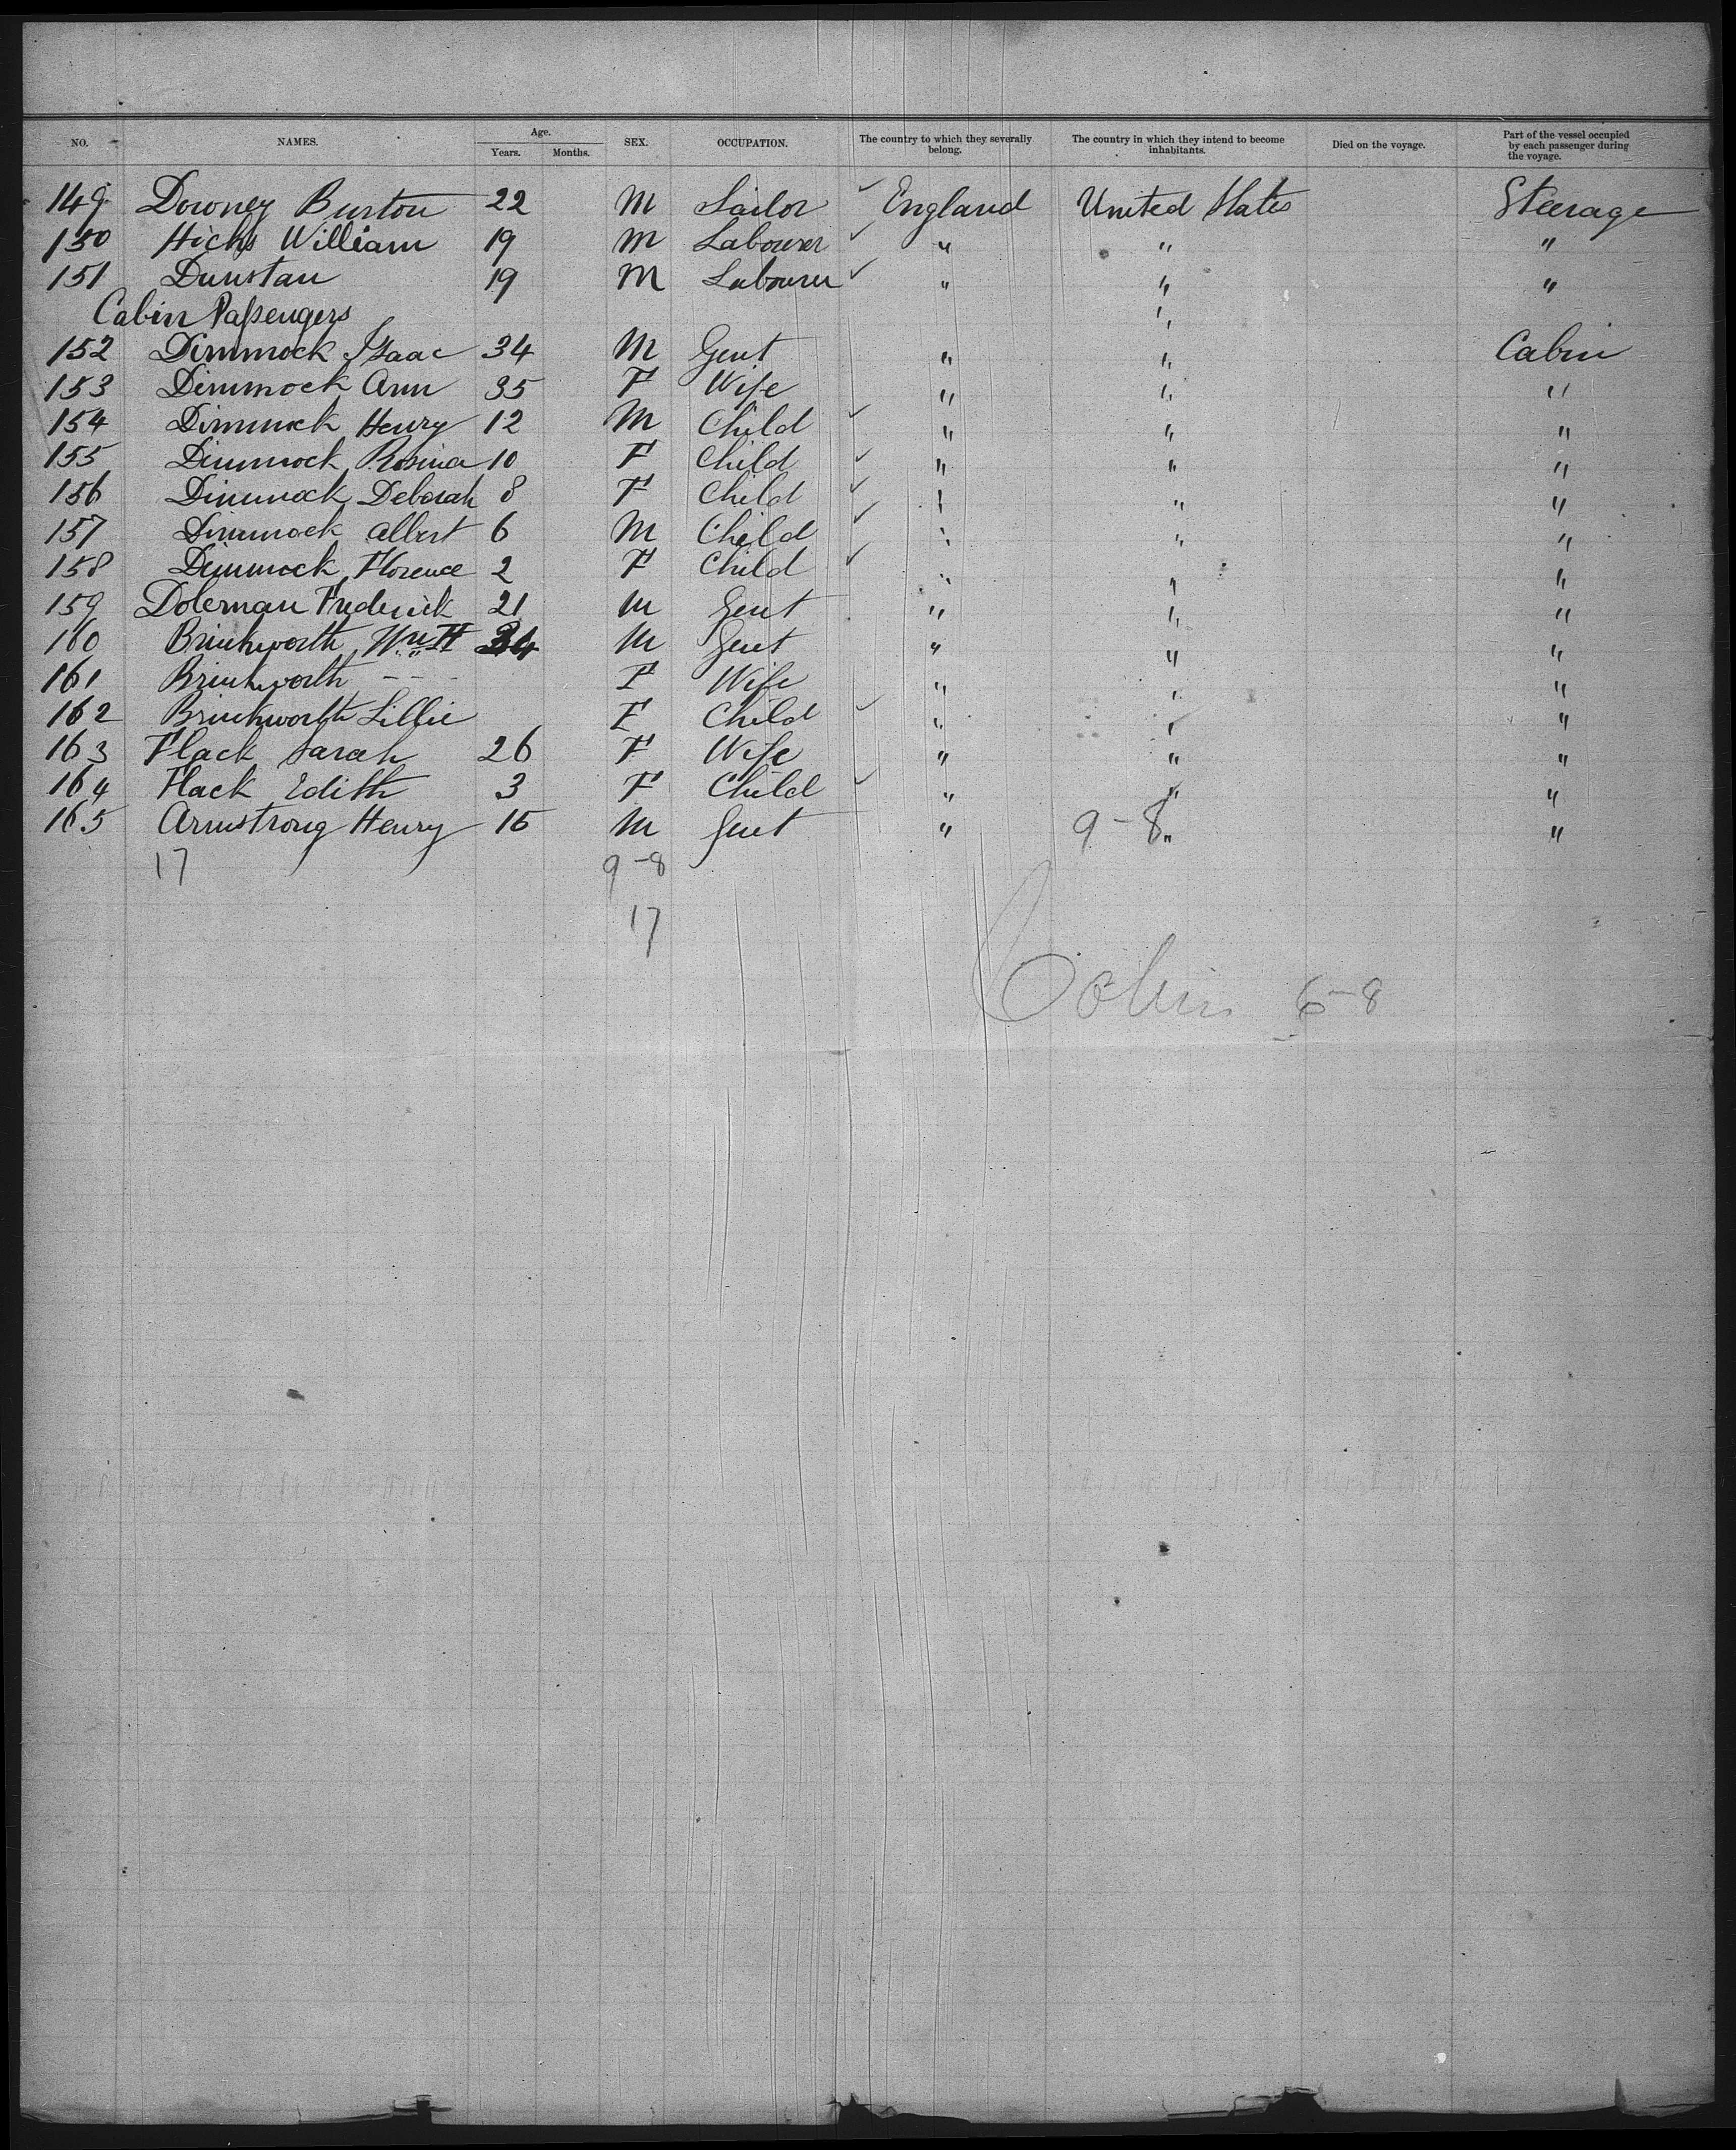 NO. NAMES. Age. Years. Months. SEX. OCCUPATION. The country to which they severally belong. The country in which they intend to become inhabitants. Died on the voyage. Part of the vessel occupied by each passenger during the voyage.
149 Downey Burton 22 M Sailor ✓ England United States Steerage
150 Hicks William 19 M Labourer ✓ " " "
151 Dunstan 19 M Labourer ✓ " " "
Cabin Passengers "
152 Dimmock Isaac 34 M Gent " " Cabin
153 Dimmock Ann 35 F Wife " " "
154 Dimmock Henry 12 M Child ✓ " " "
155 Dimmock Rosina 10 F Child ✓ " " "
156 Dimmock Deborah 8 F Child ✓ " " "
157 Dimmock Albert 6 M Child ✓ " " "
158 Dimmock Florence 2 F Child ✓ " " "
159 Doleman Frederick 21 M Gent " " "
160 Brinkworth Wm H 34 M Gent " " "
161 Brinkworth - - - F Wife " " "
162 Brinkworth Lillie F Child ✓ " " "
163 Flack Sarah 26 F Wife " " "
164 Flack Edith 3 F Child ✓ " " "
165 Armstrong Henry 15 M Gent " 9-8 " "
17 9-8
17
Cabin 6-8